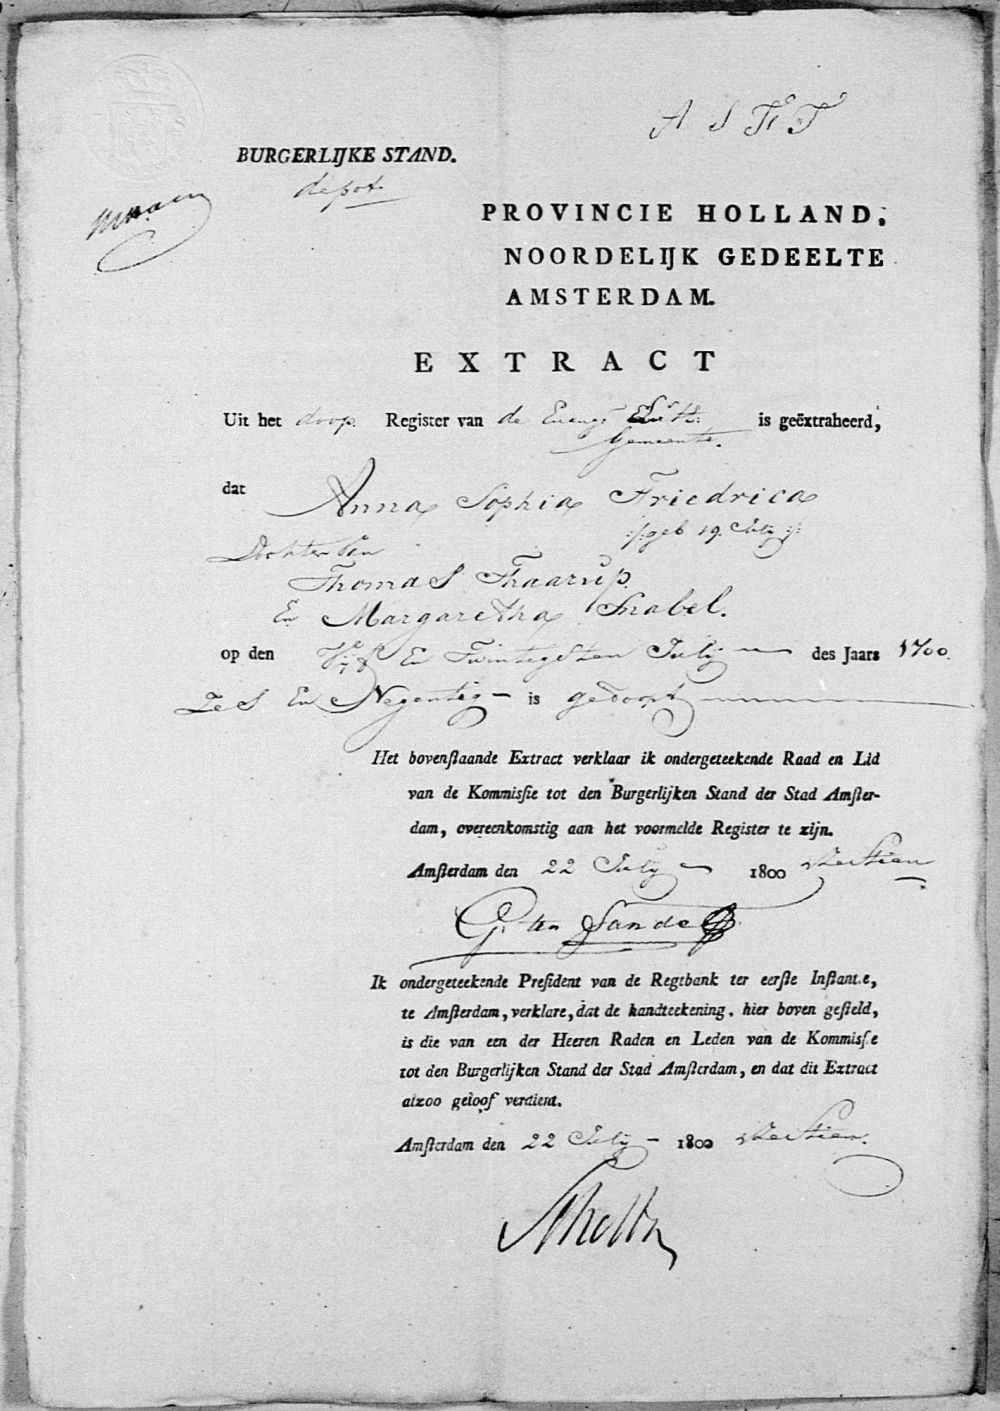 A S F T
BURGERLIJKE STAND.
depot.
PROVINCIE HOLLAND,
NOORDELIJK GEDEELTE
AMSTERDAM.
EXTRACT
Uit het doop Register van de Evang Luth. is geëxtraheerd,
Gemeente.
dat Anna Sophia Friedrica
geb 19 July
Dochter van
Thomas Thaarup
En Margaretha Snabel.
op den Vijf En Twintigsten July des Jaars 1700
Zes En Negentig is gedoopt
Het bovenstaande Extract verklaar ik ondergeteekende Raad en Lid
van de Kommissie tot den Burgerlijken Stand der Stad Amster-
dam, overeenkomstig aan het voormelde Register te zijn.
Amsterdam den 22 July 1800 veertien
G. ten Sande
Ik ondergeteekende President van de Regtbank ter eerste Instantie,
te Amsterdam, verklare, dat de handteekening, hier boven gesteld,
is die van een der Heeren Raden en Leden van de Kommissie
tot den Burgerlijken Stand der Stad Amsterdam, en dat dit Extract
alzoo geloof verdient.
Amsterdam den 22 July 1800 veertien.